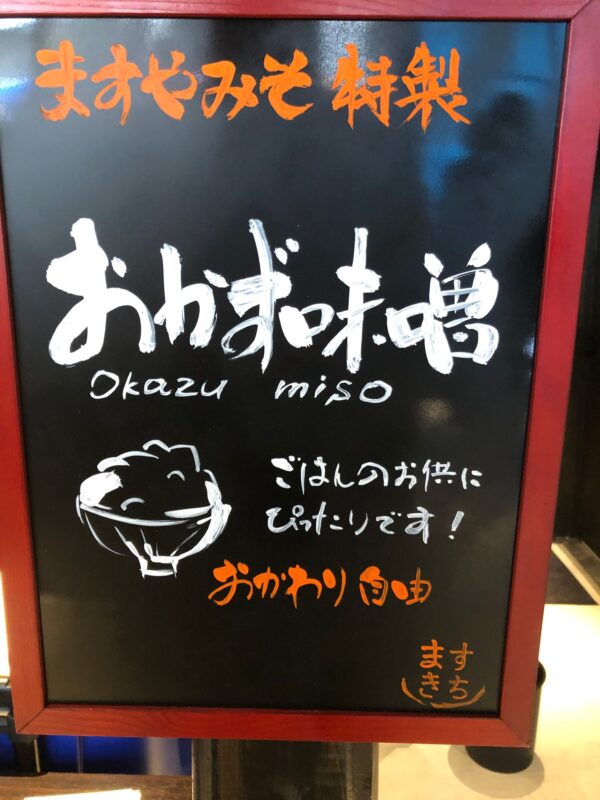 ますやみそ 特製
おかず味噌
Okazu miso
ごはんのお供に
ぴったりです！
おかわり自由
ます
きち